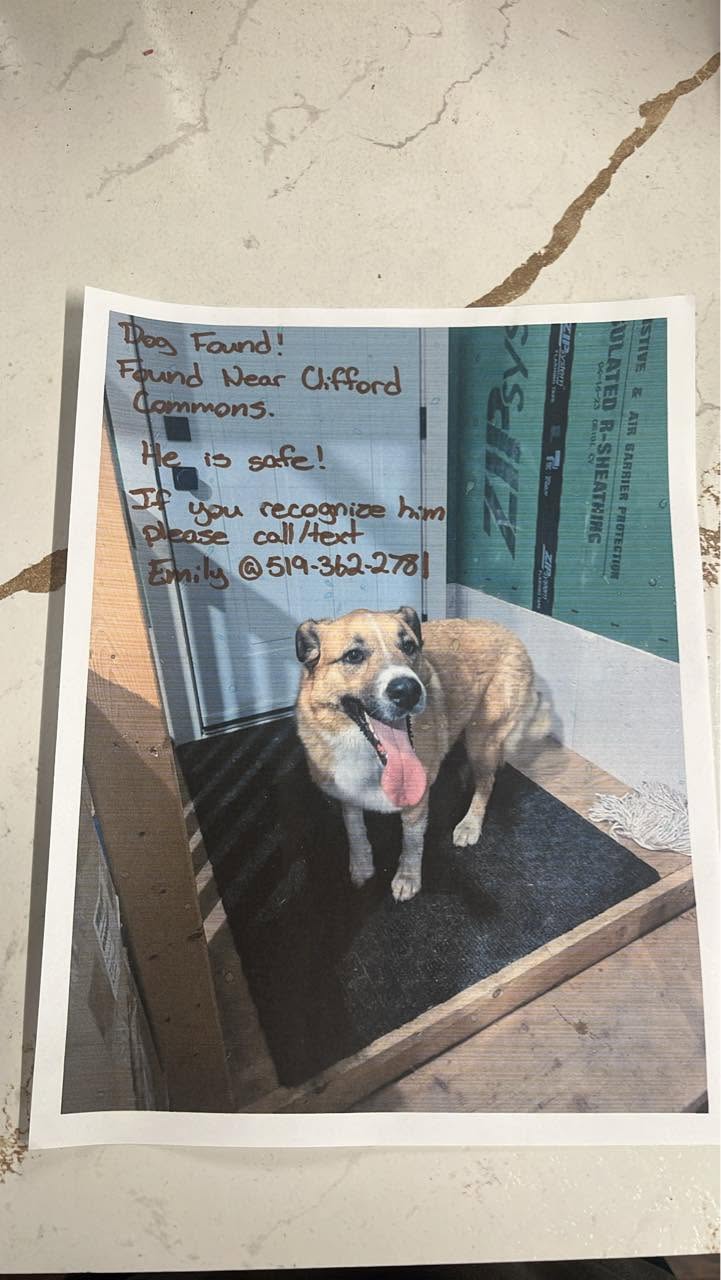 Dog Found!
Found Near Clifford
Commons.
He is safe!
If you recognize him
please call/text
Emily @ 519-362-2781
ZIP System
FLASHING TAPE
ZIP SYS
ULATED R-SHEATHING
STIVE & AIR BARRIER PROTECTION